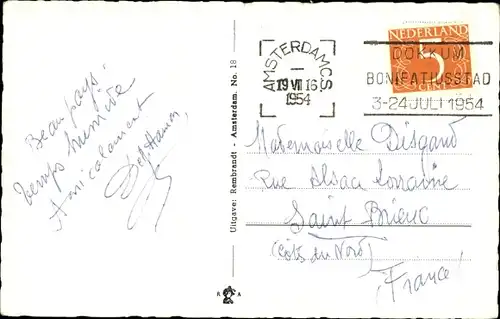 Beau pays.
temps humide
Amicalement
Uitgave: Rembrandt - Amsterdam. No. 18
R A
AMSTERDAM CS
19 VII 16
1954
NEDERLAND
5
CENT
DOKKUM
BONIFATIUSSTAD
3-24 JULI 1954
Mademoiselle Disgand
Rue Alsace Lorraine
Saint Brieuc
(Côtes du Nord)
(France)